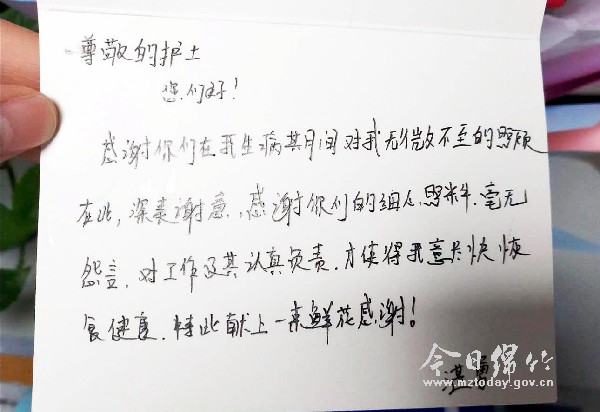 尊敬的护士
您们好!
感谢你们在我生病其月间对我无微不至的照顾
在此,深表谢意,感谢你们的细心照料.毫无
怨言,对工作及其认真负责.才使得我意外快恢
复健康.特此献上一束鲜花感谢!
今日绵竹
www.mztoday.gov.cn